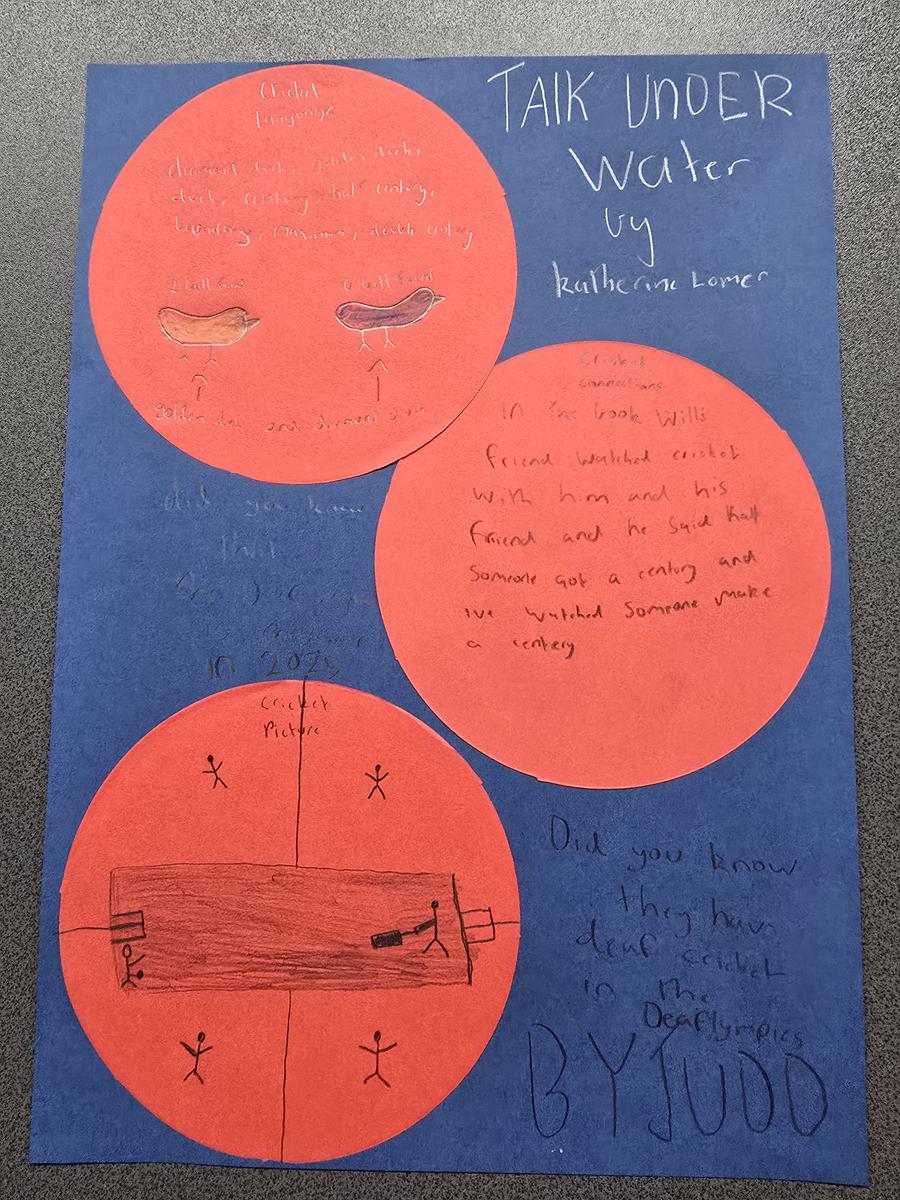 TAlK UNDER
Water
by
katherine Lomer
Cricket
language
diamond duck, golden duck,
duck, century, half century,
boundary, maximum, double century
1 ball faced
0 ball faced
golden duck and diamond duck
Cricket
connections
in the book Wills
friend watched cricket
with him and his
friend and he said that
Someone got a century and
ive watched Someone make
a centery
did you know
that
in 2025
Cricket
Picture
Did you know
they have
deaf cricket
in the
Deaflympics
BY JUDD